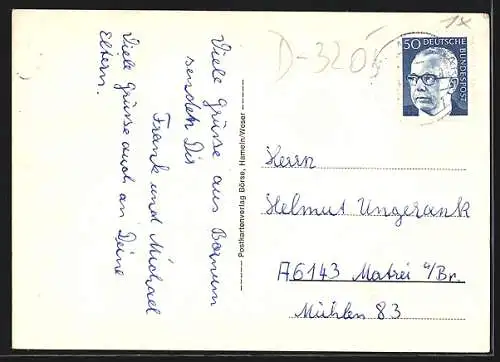 Viele Grüsse aus Bornum
sendet Dir
Frank und Michael
Viele Grüsse auch an Deine
Eltern.
Postkartenverlag Börse, Hameln/Weser
D-3205
1x
50 DEUTSCHE
BUNDESPOST
Herrn
Helmut Ungerank
A6143 Matrei a/Br.
Mühlen 83